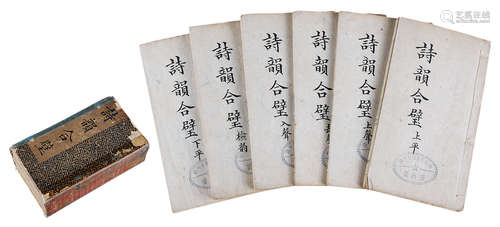 詩韻合璧
詩韻合璧 下平
詩韻合璧 檢韵
詩韻合璧 入聲
詩韻合璧
詩韻合璧 上聲
詩韻合璧 上平